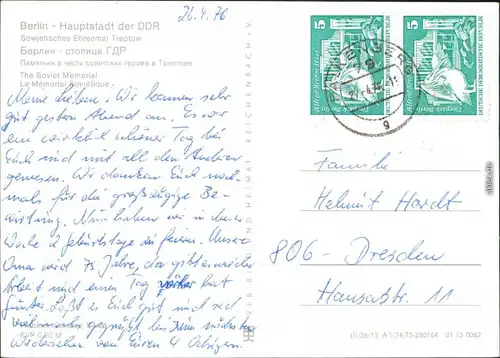 Berlin - Hauptstadt der DDR
Sowjetisches Ehrenmal Treptow
Берлин - столица ГДР
Памятник в честь советских героев в Трептове
The Soviet Memorial
Le Mémorial Soviétique
26.4.76
Meine Lieben. Wir kamen sehr
gut gestern Abend an. Es war
ein wirklich schöner Tag bei
Euch und mit all den Anderen
gewesen. Wir danken Euch noch-
mals für die großzügige Be-
wirtung. Nun haben wir in dieser
Woche 2 Geburtstage zu feiern. Unsere
Oma wird 75 Jahre, da gibt es wieder
Arbeit und einen Tag hat
Günter. Laßt es Euch gut und seid
viel mals gegrüßt bis zum nächsten
Wiedersehen von Euren 4
EVP 0,20 M
BILD UND HEIMAT REICHENBACH I. V.
5
5
DEUTSCHE DEMOKRATISCHE REPUBLIK
Familie
Helmut Hardt
806 - Dresden
Hansastr. 11
III/26/13 A 1/74/75-280164 01 15 0062